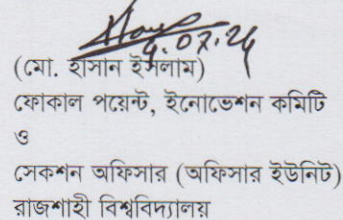 8.07.24
(মো. হাসান ইসলাম)
ফোকাল পয়েন্ট, ইনোভেশন কমিটি
ও
সেকশন অফিসার (অফিসার ইউনিট)
রাজশাহী বিশ্ববিদ্যালয়